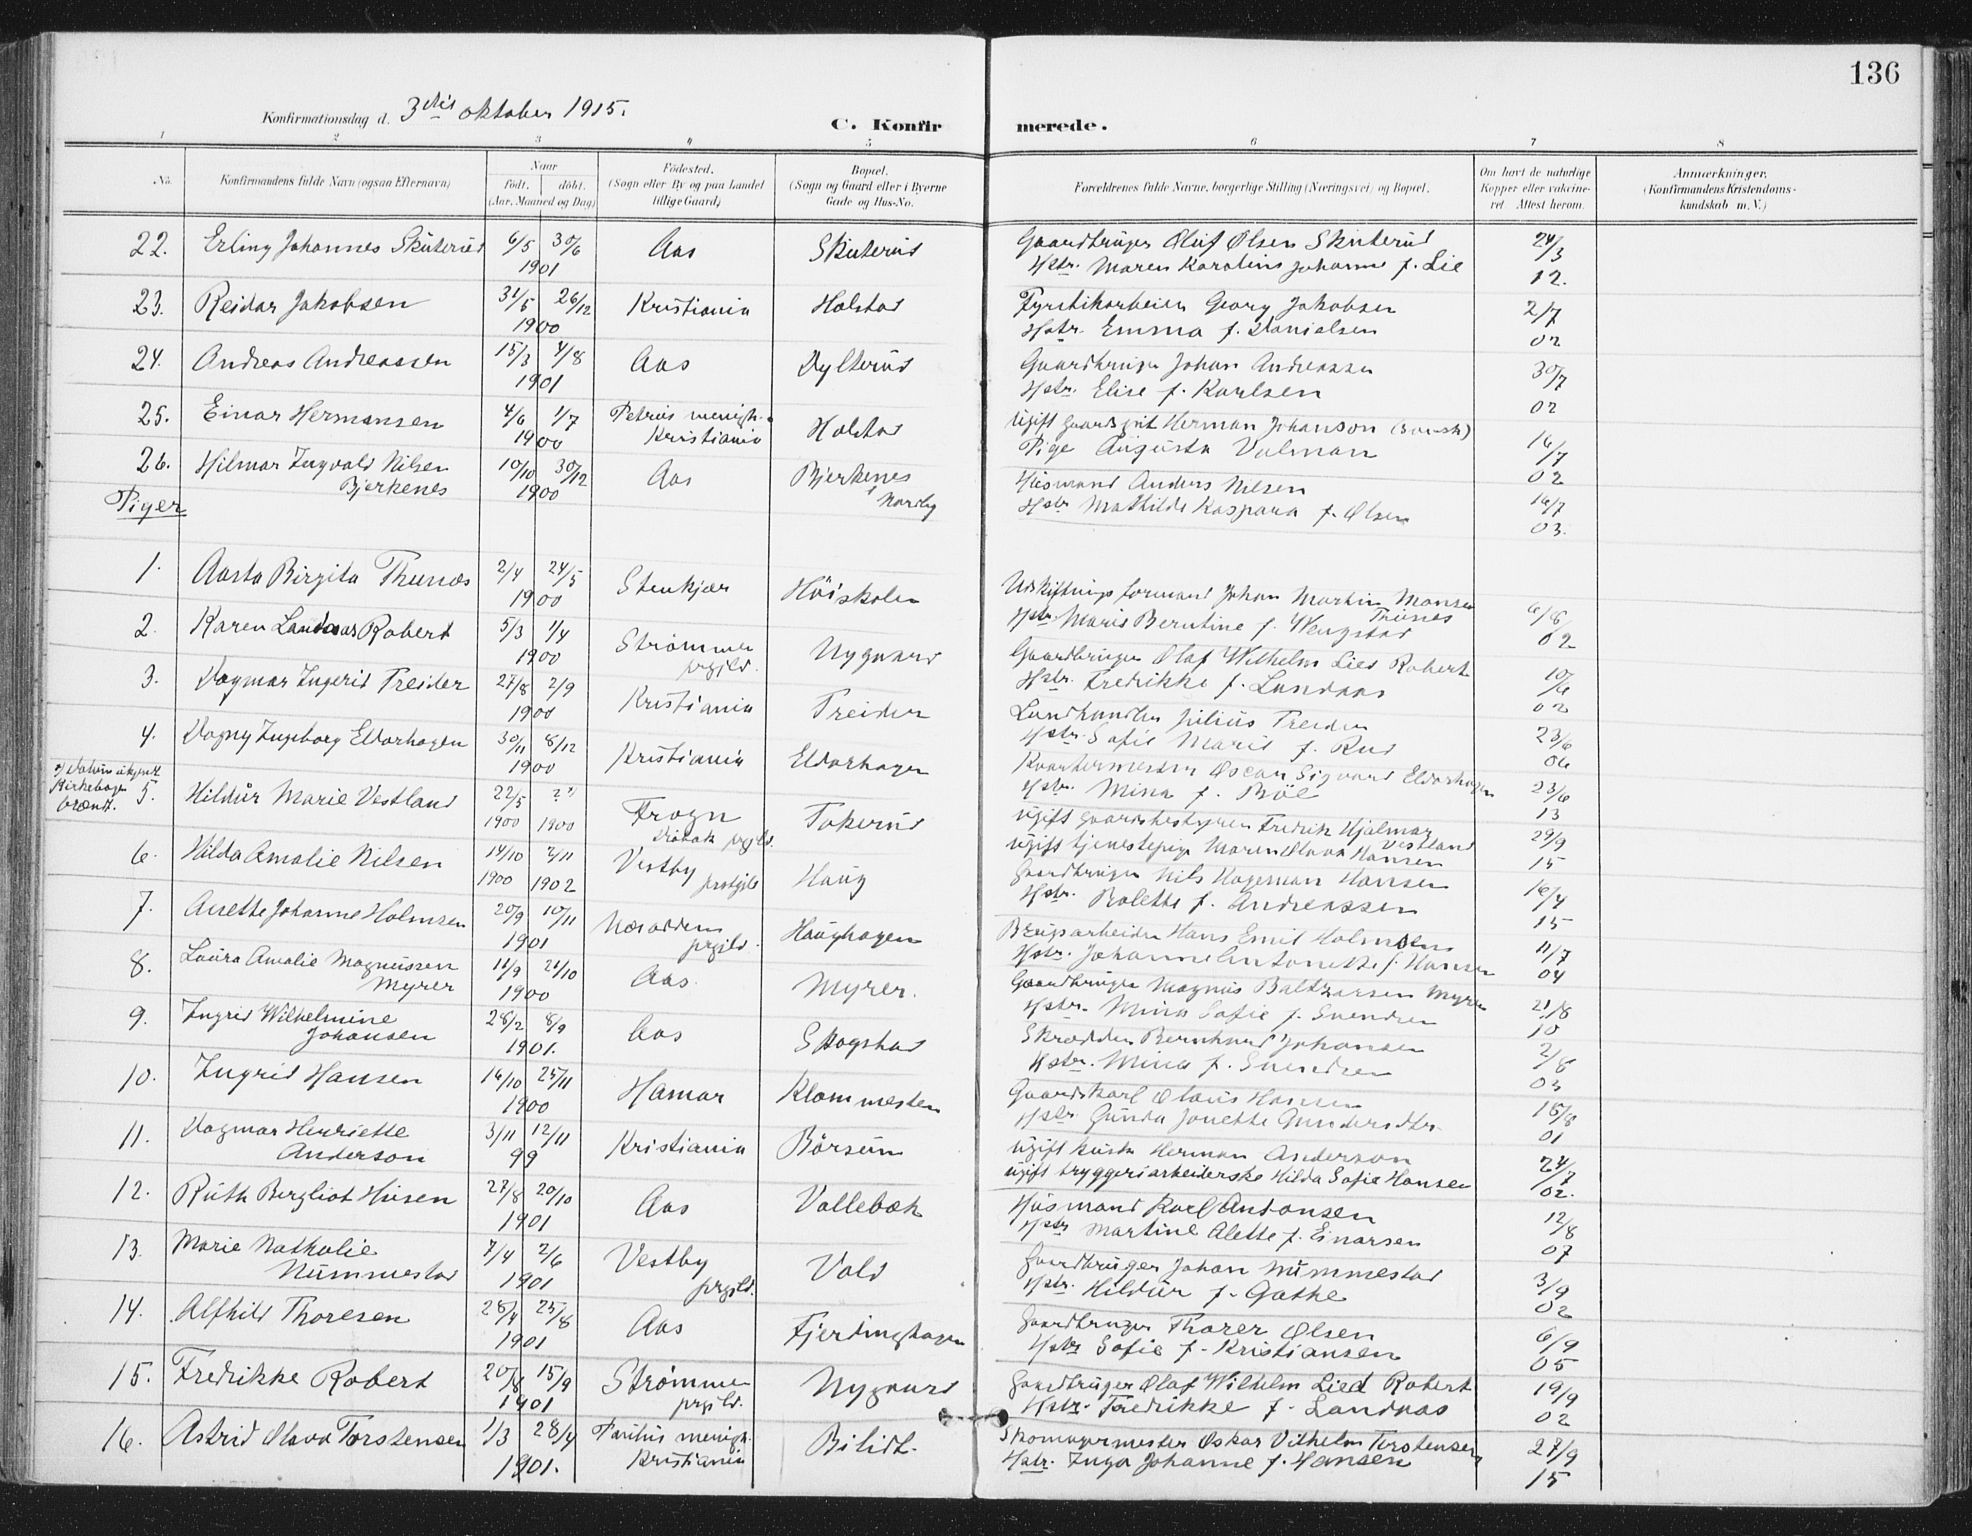 136
Konfirmationsdag d. 3die oktober 1915.
C. Konfirmerede.
1 2 3 4 5 6 7 8
No. Konfirmandens fulde Navn (ogsaa Efternavn) Naar født. døbt. (Aar, Maaned og Dag) Födested. (Sogn eller By og paa Landet tillige Gaard) Bopæl. (Sogn og Gaard eller i Byerne Gade og Hus-No. Forældrenes fulde Navne, borgerlige Stilling (Næringsvei) og Bopæl. Om havt de naturlige Kopper eller vakcineret Attest herom. Anmærkninger. (Konfirmandens Kristendomskundskab m. V.)
22. Erling Johannes Skuterud 6/5 30/6 1901 Aas Skuterud Gaardbruger Oluf Olsen Skuterud
Hstr. Maren Karoline Johanne f. Lie 24/3 12.
23. Reidar Jakobsen 31/5 26/12 1900 Kristiania Holstad Fyrstikarbeider Georg Jakobsen
Hstr. Emma f. Danielsen 2/7 02
24. Andreas Andreassen 15/3 4/8 1901 Aas Dylterud Gaardbruger Johan Andreassen
Hstr. Elise f. Karlsen 30/7 02
25. Einar Hermansen 4/6 1/7 1900 Petrus menigh. Kristiania Holstad Ugift gaardsgut Herman Johanson (svensk)
Pige Augusta Valman 16/7 02
26. Hilmar Ingvald Nilsen Bjerkenes 10/10 30/12 1900 Aas Bjerkenes Nordby Husmand Anders Nilsen
Hstr. Mathilde Kaspara f. Olsen 16/7 03.
Piger
1. Aasta Birgita Thunæs 2/4 24/5 1900 Stenkjær Höiskolen Udskiftningsformand Johan Martin Monsen
Hstr. Marie Berntine f. Wengstad 6/8 02
2. Karen Landaas Robert 5/3 1/4 1900 Strømmen prgjld. Nygaard Gaardbruger Olaf Wilhelm Lied Robert
Hstr. Fredrikke f. Landaas 10/6 02
3. Dagmar Ingerid Treider 27/8 2/9 1900 Kristiania Treider Landhandler Julius Treider
Hstr. Sofie Marie f. Rud 23/6 06
4. Dagny Ingeborg Eldorhagen 30/11 8/12 1900 Kristiania Eldorhagen Kvartermester Oscar Sigvard Eldorhagen
Hstr. Mina f. Böe 23/6 13
Kirkebogen brændt.
5. Hildur Marie Vestland 22/5 1900 ? 1900 Frogn Drøbak prgjld. Tokerud Ugift gaardsbestyrer Fredrik Hjalmar Vestland
ugift tjenestepige Maren Olava Hansen 29/9 15
6. Hilda Amalie Nilsen 14/10 1900 2/11 1902 Vestby prstgjld Haug Gaardbruger Nils Hageman Hansen
Hstr. Bolette f. Andreassen 16/4 15
7. Anette Johanne Holmsen 20/9 10/11 1901 Næsodden prgjld. Haughagen Brugsarbeider Hans Emil Holmsen
Hstr. Johanne Antonette f. Hansen 11/7 04
8. Laura Amalie Magnussen Myrer 11/9 21/10 1900 Aas. Myrer. Gaardbruger Magnus Baltzarsen Myrer
Hstr. Mina Sofie f. Svendsen 21/8 10
9. Ingrid Wilhelmine Johansen 28/2 8/9 1901. Aas Skogstad Skrædder Bernhard Johansen
Hstr. Mina f. Svendsen 2/8 03
10. Ingrid Hansen 16/10 25/11 1900 Hamar Klommesten Gaardskarl Olaus Hansen
Hstr. Gunda Jonette Gundersdtr. 15/8 01
11. Dagmar Henriette Anderson 3/11 12/11 99 Kristiania Börsum Ugift kusk Herman Anderson
ugift bryggeriarbeiderske Hilda Sofie Hansen 24/7 02.
12. Ruth Bergliot Husen 27/8 20/10 1901 Aas Vollebæk Husmand Karl Antonsen
Hstr Martine Alette f. Einarsen 12/8 07
13. Marie Nathalie Nummestad 7/4 2/6 1901 Vestby prgjld. Vold Gaardbruger Johan Nummestad
Hstr. Hildur f. Gathe 3/9 02
14. Alfhild Thoresen 28/4 25/8 1901 Aas Fjerdinghagen Gaardbruger Thorer Olsen
Hstr Sofie f. Kristiansen 6/9 05
15. Fredrikke Robert 20/8 15/9 1901 Strømmen prgjld. Nygaard Gaardbruger Olaf Wilhelm Lied Robert
Hstr. Fredrikke f. Landaas 19/9 02
16. Astrid Olava Torstensen 1/3 28/4 1901. Paulus menigh. Kristiania Bilidt. Skomagermester Oskar Vilhelm Torstensen
Hstr. Inga Johanne f. Hansen 27/9 15